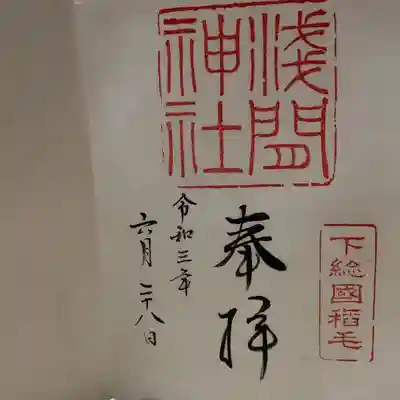 浅間
神社
下総國稻毛
奉拝
令和三年
六月二十八日